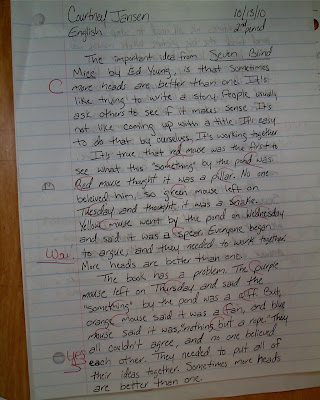 Courtnei Jansen 10/13/10
English 2nd period
The important idea from Seven Blind
Mice by Ed Young, is that sometimes
C more heads are better than one. It's
like trying to write a story. People usually
ask others to see if it makes sense. It's
not like coming up with a title. It's easy
to do that by ourselves, It's working together
It's true that red mouse was the first to
see what this "something" by the pond was.
Red mouse thought it was a pillar. No one
believed him, so green mouse left on
Tuesday and thought it was a snake.
Yellow mouse went by the pond on Wednesday
and said it was a spear. Everyone began
to argue, and they needed to work together.
More heads are better than one.
The book has a problem. The purple
mouse left on Thursday and said the
"something" by the pond was a cliff. But,
orange mouse said it was a fan, and blue
mouse said it was, "nothing but a rope." They
all couldn't agree, and no one believed
yes each other. They needed to put all of
their ideas together. Sometimes more heads
are better than one.